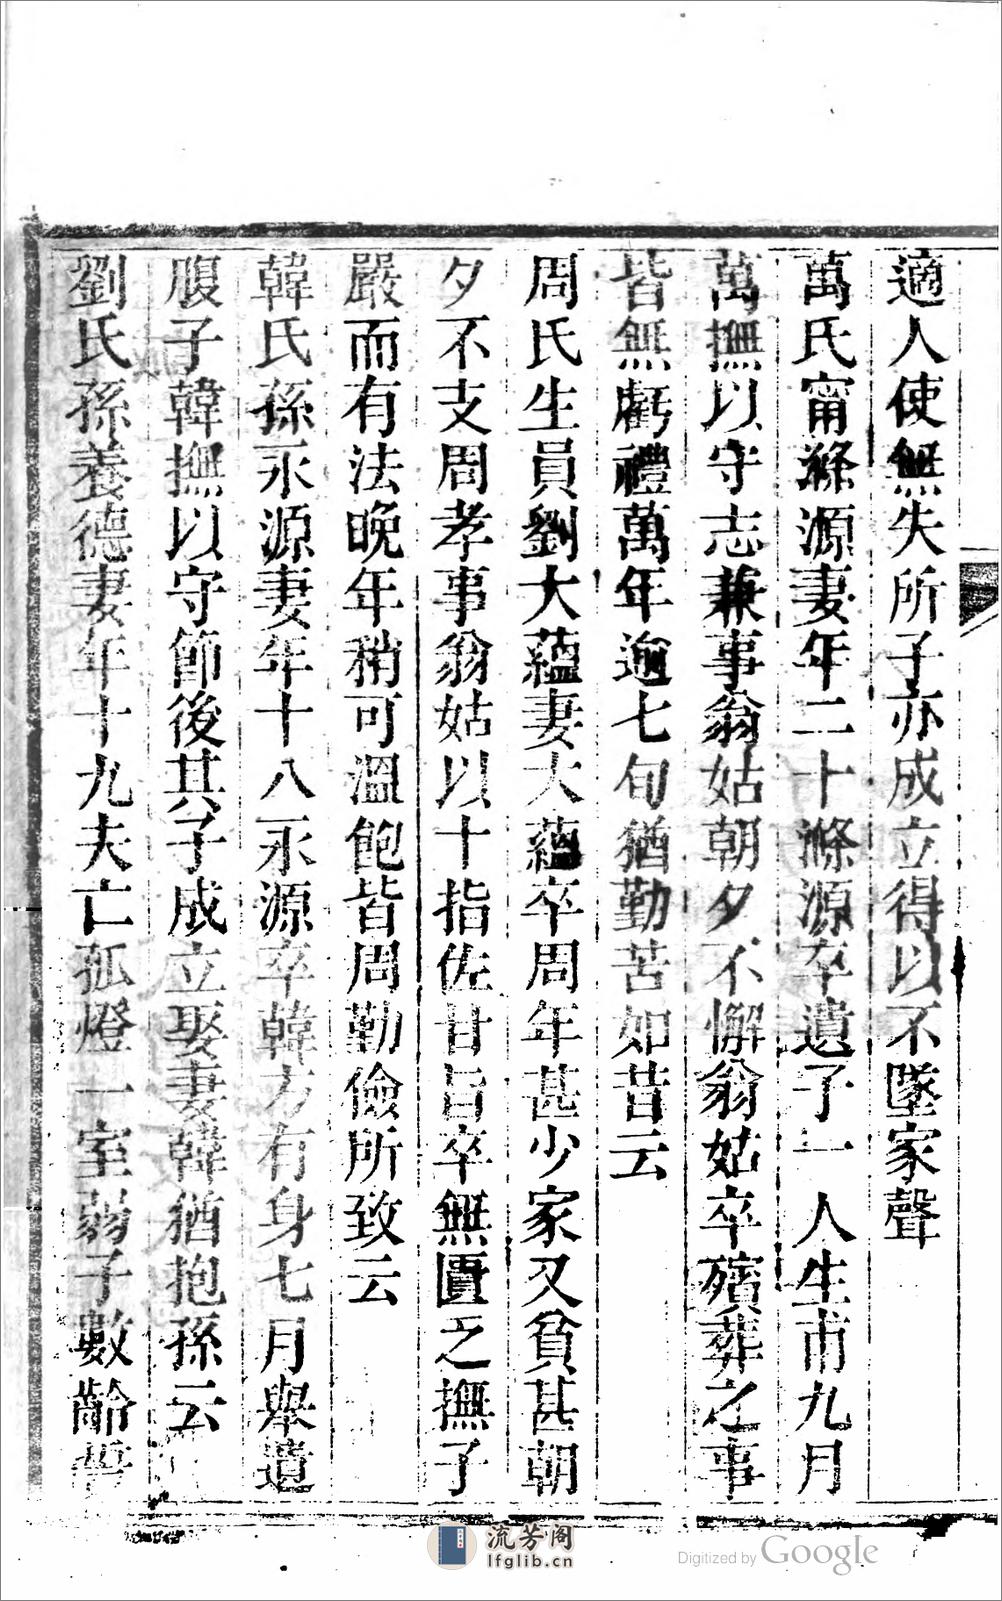 適人使無失所子亦成立得以不墜家聲
萬氏甯滌源妻年二十滌源卒遺子一人生甫九月
萬撫以守志兼事翁姑朝夕不懈翁姑卒殯葬之事
皆無虧禮萬年逾七旬猶勤苦如昔云
周氏生員劉大蘊妻大蘊卒周年甚少家又貧甚朝
夕不支周孝事翁姑以十指佐甘旨卒無匱之撫子
嚴而有法晚年稍可溫飽皆周勤儉所致云
韓氏孫永源妻年十八永源卒韓方有身七月舉遺
腹子韓撫以守節後其子成立娶妻韓猶抱孫云
劉氏孫養德妻年十九夫亡孤燈一室弱子數齡誓
流芳阁
lfglib.cn
Digitized by Google